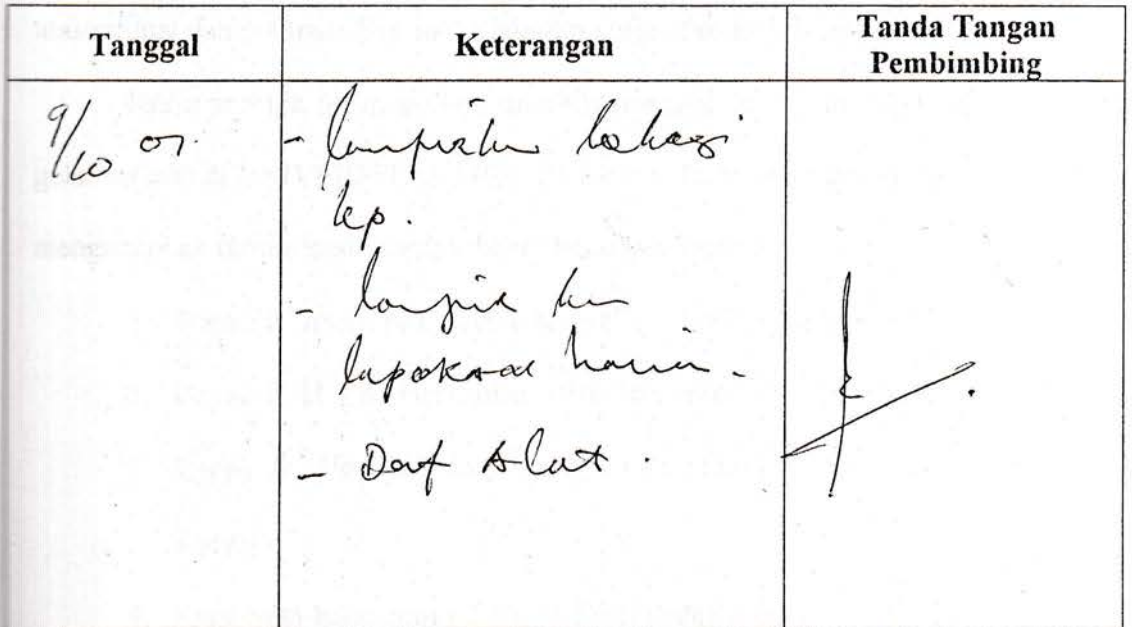 Tanggal
Keterangan
Tanda Tangan
Pembimbing
9/10 07.
- lampirkan lokasi
kp.
- lampirkan
laporan harian -
- Daf Alat.